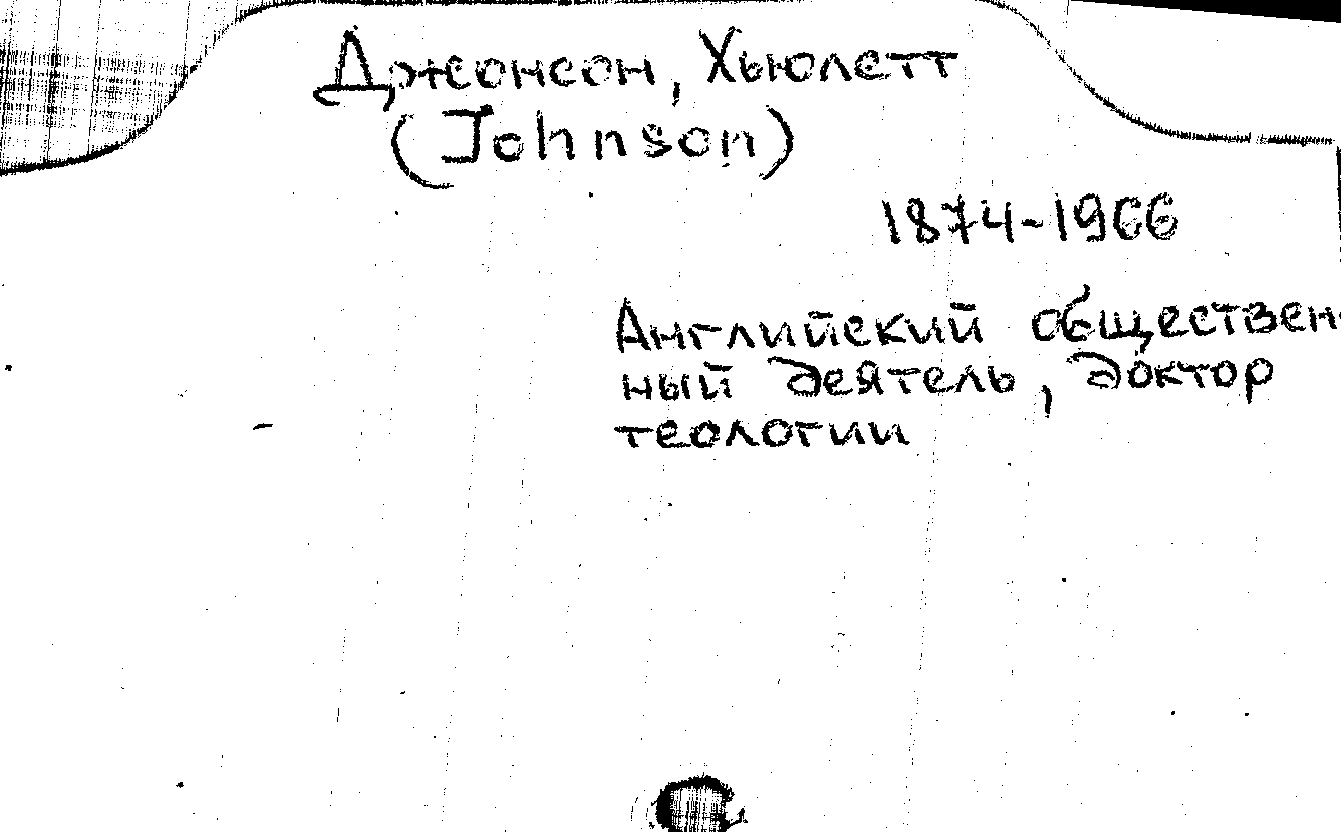 Джонсон, Хьюлетт
(Johnson)
1874-1966
Английский обществен-
ный деятель, доктор
теологии